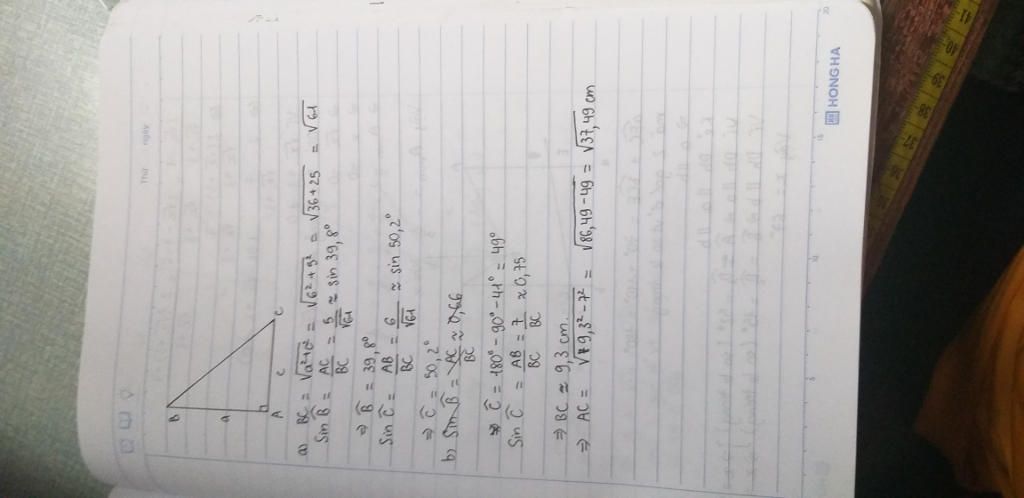 Thứ
ngày
B
a
A
c
C
a) BC = √a²+c² = √6²+5² = √36+25 = √61
Sin B̂ = AC/BC = 5/√61 ≈ sin 39,8°
⇒ B̂ = 39,8°
Sin Ĉ = AB/BC = 6/√61 ≈ sin 50,2°
⇒ Ĉ = 50,2°
b) Sin B̂ = AC/BC ≈ 0,66
⇒ Ĉ = 180° - 90° - 41° = 49°
Sin Ĉ = AB/BC = 7/BC ≈ 0,75
⇒ BC ≈ 9,3 cm.
⇒ AC = √9,3² - 7² = √86,49 - 49 = √37,49 cm
5
10
15
20
HONG HA
37
38
39
40
41